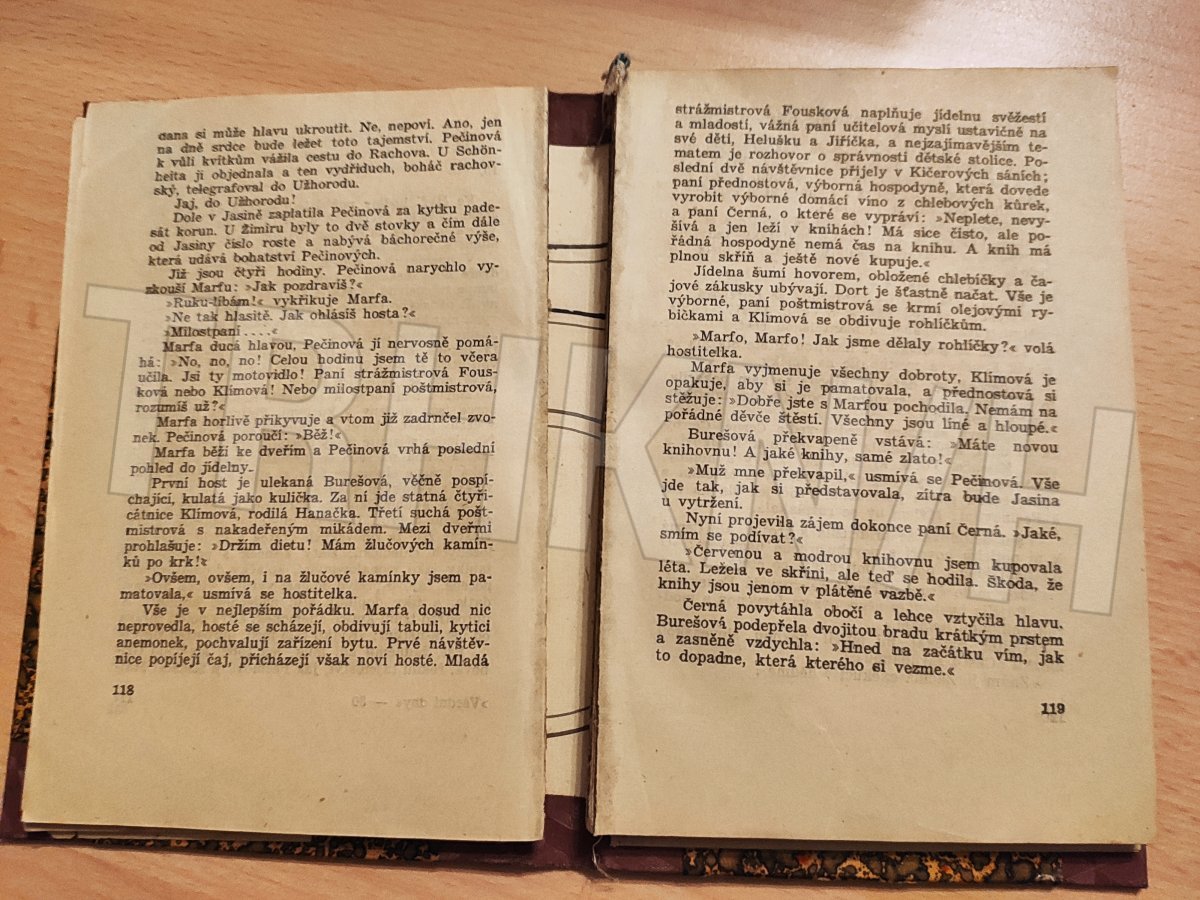 dana si může hlavu ukroutit. Ne, nepoví. Ano, jen
na dně srdce bude ležet toto tajemství. Pečinová
k vůli kvítkům vážila cestu do Rachova. U Schön-
helta ji objednala a ten vydřiduch, boháč rachov-
ský, telegrafoval do Užhorodu.
Jaj, do Užhorodu!
Dole v Jasině zaplatila Pečinová za kytku pade-
sát korun. U Žimiru byly to dvě stovky a čím dále
od Jasiny číslo roste a nabývá báchorečné výše,
která udává bohatství Pečinových.
Již jsou čtyři hodiny. Pečinová narychlo vy-
zkouší Marfu: »Jak pozdravíš?«
»Ruku-líbám!« vykřikuje Marfa.
»Ne tak hlasitě. Jak ohlásíš hosta?«
»Milostpaní . . . .«
Marfa ducá hlavou, Pečinová jí nervosně pomá-
há: »No, no, no! Celou hodinu jsem tě to včera
učila. Jsi ty motovidlo! Paní strážmistrová Fous-
ková nebo Klímová! Nebo milostpaní poštmistrová,
rozumíš už?«
Marfa horlivě přikyvuje a vtom již zadrnčel zvo-
nek. Pečinová poroučí: »Běž!«
Marfa běží ke dveřím a Pečinová vrhá poslední
pohled do jídelny.
První host je ulekaná Burešová, věčně pospí-
chající, kulatá jako kulička. Za ní jde statná čtyři-
cátnice Klímová, rodilá Hanačka. Třetí suchá pošt-
mistrová s nakadeřeným mikádem. Mezi dveřmi
prohlašuje: »Držím dietu! Mám žlučových kamín-
ků po krk!«
»Ovšem, ovšem, i na žlučové kamínky jsem pa-
matovala,« usmívá se hostitelka.
Vše je v nejlepším pořádku. Marfa dosud nic
neprovedla, hosté se scházejí, obdivují tabuli, kytici
anemonek, pochvalují zařízení bytu. Prvé návštěv-
nice popíjejí čaj, přicházejí však noví hosté. Mladá
118
strážmistrová Fousková naplňuje jídelnu svěžestí
a mladostí, vážná paní učitelová myslí ustavičně na
své děti, Helušku a Jiříčka, a nejzajímavějším te-
matem je rozhovor o správnosti dětské stolice. Po-
slední dvě návštěvnice přijely v Kičerových sáních;
paní přednostová, výborná hospodyně, která dovede
vyrobit výborné domácí víno z chlebových kůrek,
a paní Černá, o které se vypráví: »Neplete, nevy-
šívá a jen leží v knihách! Má sice čisto, ale po-
řádná hospodyně nemá čas na knihu. A knih má
plnou skříň a ještě nové kupuje.«
Jídelna šumí hovorem, obložené chlebíčky a ča-
jové zákusky ubývají. Dort je šťastně načat. Vše je
výborné, paní poštmistrová se krmí olejovými ry-
bičkami a Klímová se obdivuje rohlíčkům.
»Marfo, Marfo! Jak jsme dělaly rohlíčky?« volá
hostitelka.
Marfa vyjmenuje všechny dobroty, Klímová je
opakuje, aby si je pamatovala, a přednostová si
stěžuje: »Dobře jste s Marfou pochodila. Nemám na
pořádné děvče štěstí. Všechny jsou líné a hloupé.«
Burešová překvapeně vstává: »Máte novou
knihovnu! A jaké knihy, samé zlato!«
»Muž mne překvapil,« usmívá se Pečinová. Vše
jde tak, jak si představovala, zítra bude Jasina
u vytržení.
Nyní projevila zájem dokonce paní Černá. »Jaké,
smím se podívat?«
»Červenou a modrou knihovnu jsem kupovala
léta. Ležela ve skříni, ale teď se hodila. Škoda, že
knihy jsou jenom v plátěné vazbě.«
Černá povytáhla obočí a lehce vztyčila hlavu.
Burešová podepřela dvojitou bradu krátkým prstem
a zasněně vzdychla: »Hned na začátku vím, jak
to dopadne, která kterého si vezme.«
119